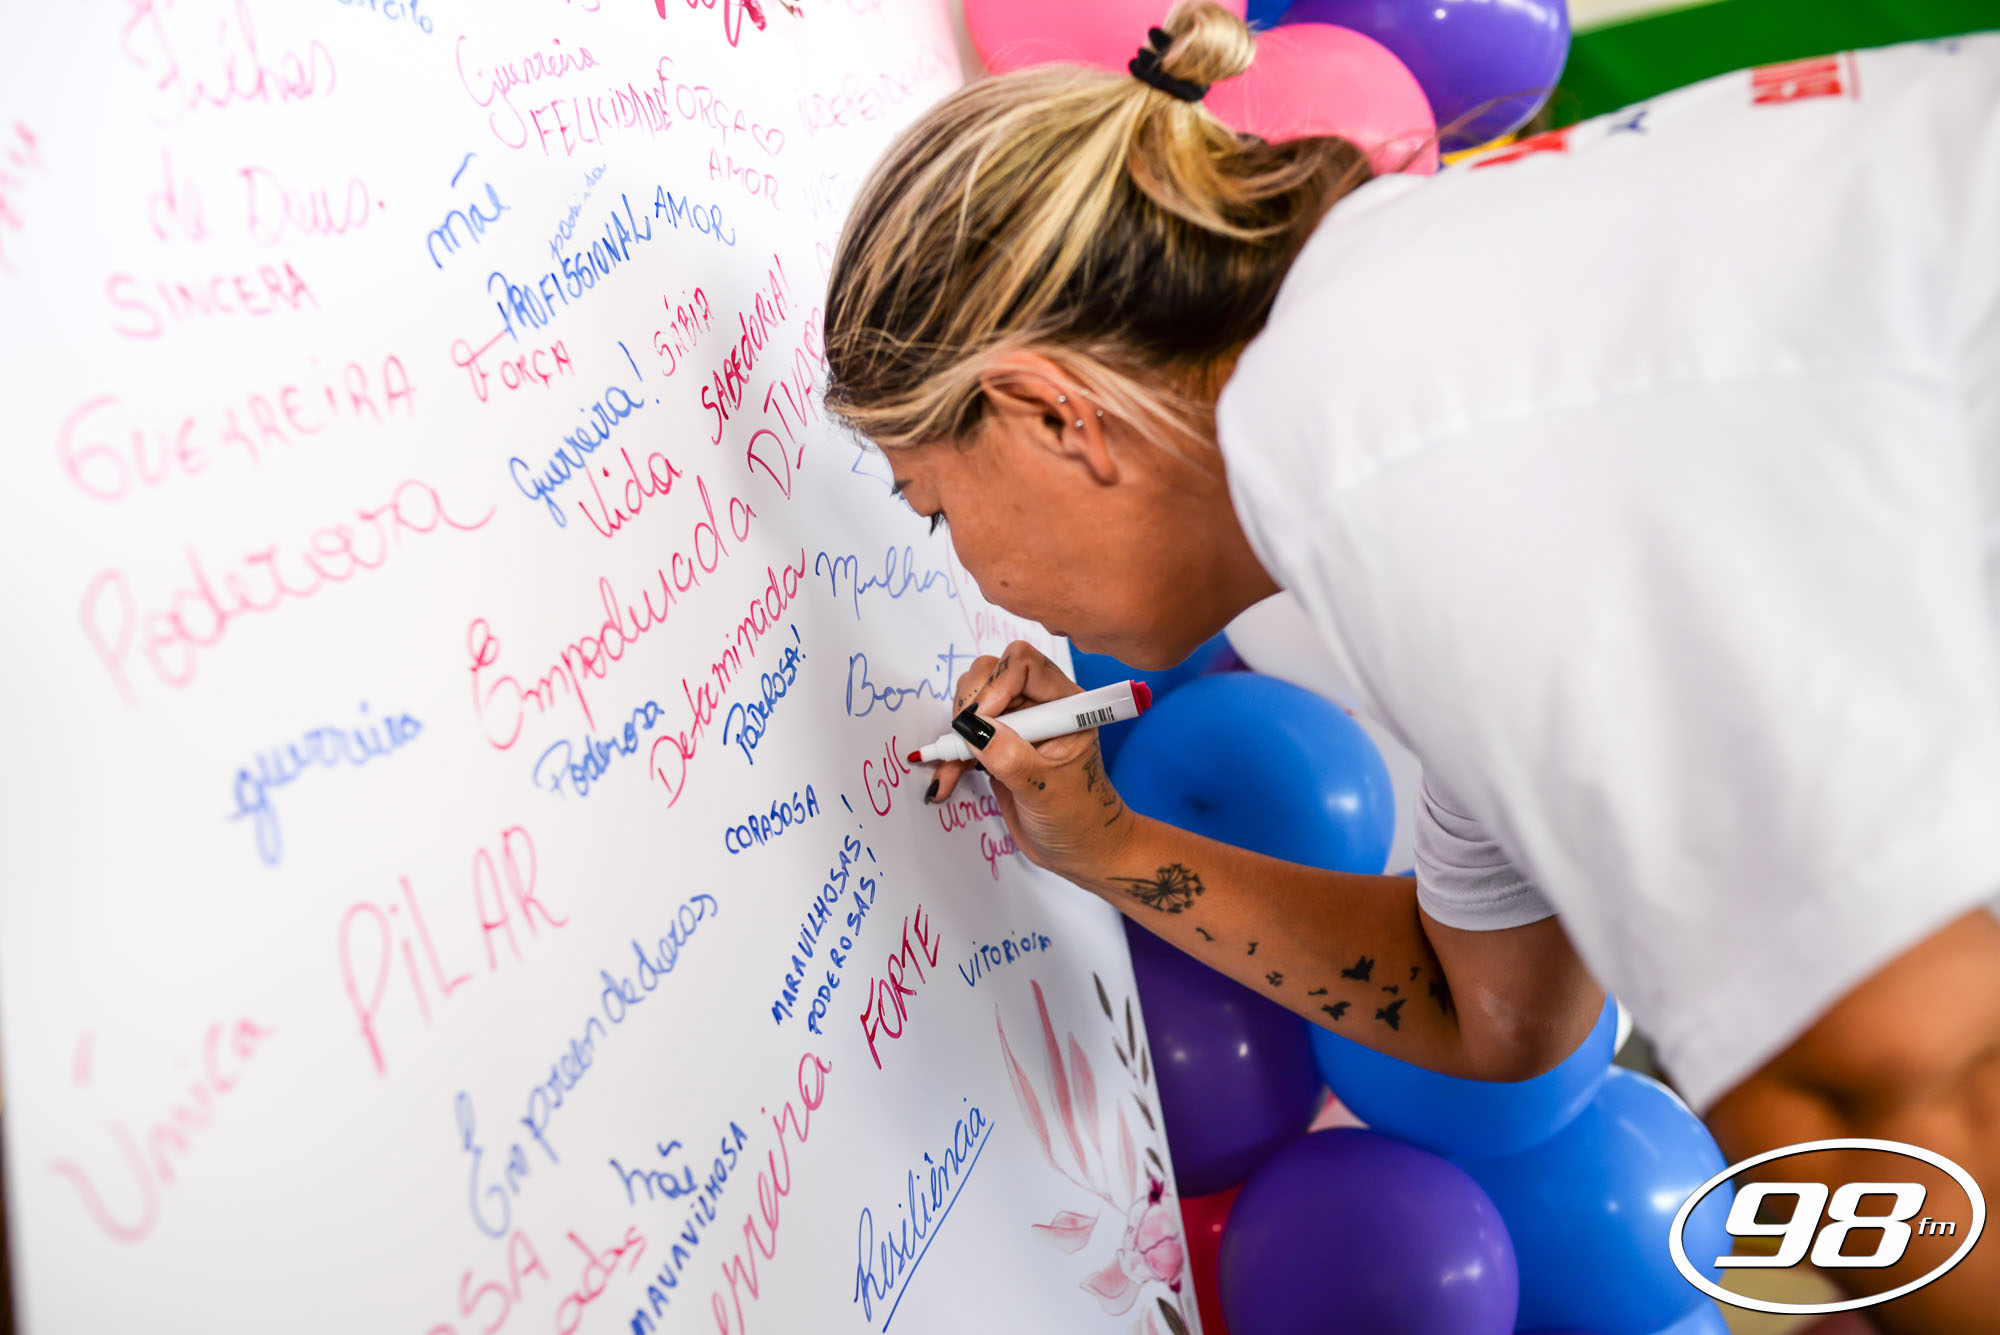 Filhas
de Deus.
SINCERA
Guerreira
FELICIDADE
FORÇA
AMOR
mãe
poderosa
PROFISSIONAL
AMOR
GUERREIRA
FORÇA
Guerreira!
SÁBIA
SABEDORIA!
Vida
DIVAS
Poderosa
Empoderada
Determinada
Mulher
guerreira
Poderosa
PODEROSA!
Bonit
GUE
única
PILAR
CORAJOSA
MARAVILHOSAS!
PODEROSAS!
FORTE
VITORIOSA
Única
Empreendedoras
mãe
MARAVILHOSA
Resiliência
98 fm